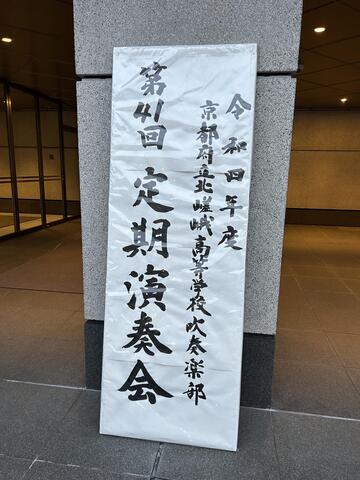 令和四年度
京都府立北嵯峨高等学校吹奏楽部
第41回 定期演奏会